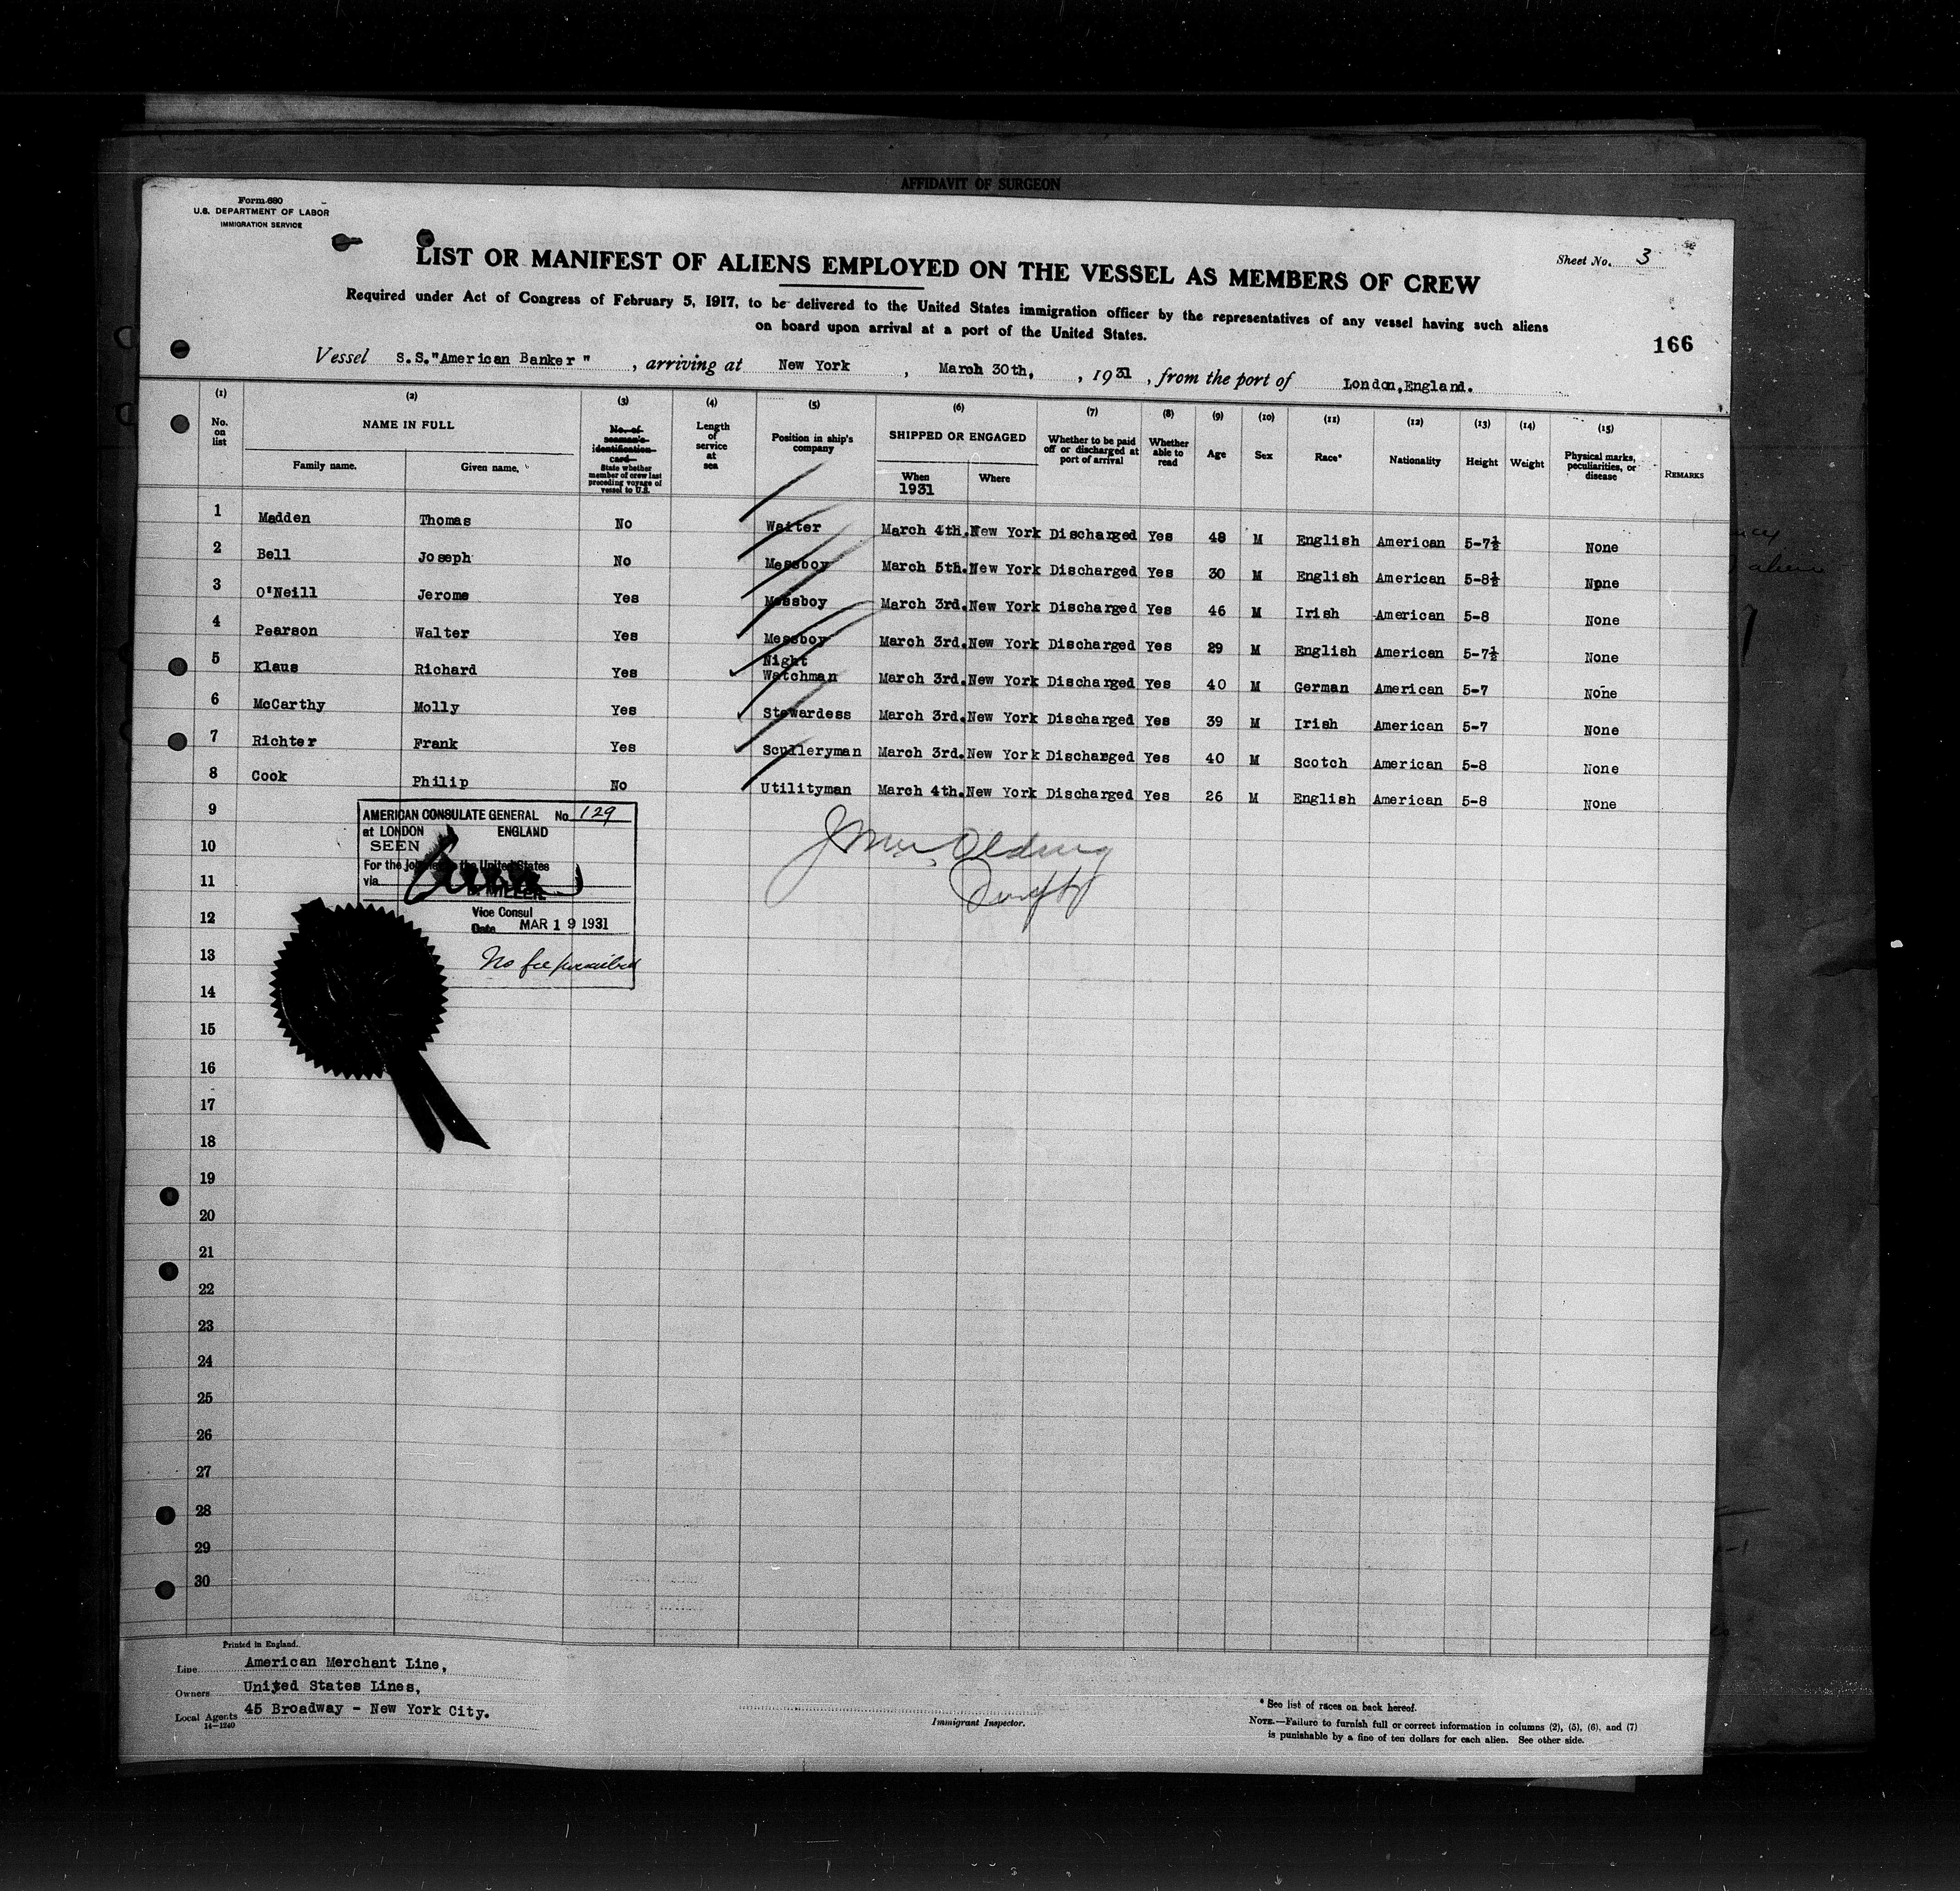 AFFIDAVIT OF SURGEON
Form 680
U.S. DEPARTMENT OF LABOR
IMMIGRATION SERVICE
LIST OR MANIFEST OF ALIENS EMPLOYED ON THE VESSEL AS MEMBERS OF CREW
Sheet No. 3
Required under Act of Congress of February 5, 1917, to be delivered to the United States immigration officer by the representatives of any vessel having such aliens
on board upon arrival at a port of the United States.
166
Vessel S.S."American Banker ", arriving at New York, March 30th, , 1931, from the port of London,England.
(1) (2) (3) (4) (5) (6) (7) (8) (9) (10) (11) (12) (13) (14) (15)
No. on list NAME IN FULL Family name. Given name. No. of seaman's identification card State whether member of crew last preceding voyage of vessel to U.S. Length of service at sea Position in ship's company SHIPPED OR ENGAGED When 1931 Where Whether to be paid off or discharged at port of arrival Whether able to read Age Sex Race* Nationality Height Weight Physical marks, peculiarities, or disease REMARKS
1 Madden Thomas No Waiter March 4th. New York Discharged Yes 48 M English American 5-7½ None
2 Bell Joseph No Messboy March 5th. New York Discharged Yes 30 M English American 5-8½ None
3 O'Neill Jerome Yes Messboy March 3rd. New York Discharged Yes 46 M Irish American 5-8 None
4 Pearson Walter Yes Messboy March 3rd. New York Discharged Yes 29 M English American 5-7½ None
5 Klaus Richard Yes Night Watchman March 3rd. New York Discharged Yes 40 M German American 5-7 None
6 McCarthy Molly Yes Stewardess March 3rd. New York Discharged Yes 39 M Irish American 5-7 None
7 Richter Frank Yes Sculleryman March 3rd. New York Discharged Yes 40 M Scotch American 5-8 None
8 Cook Philip No Utilityman March 4th. New York Discharged Yes 26 M English American 5-8 None
9
AMERICAN CONSULATE GENERAL No. 129
at LONDON ENGLAND
SEEN
10
For the journey to the United States
via
11
MILLER
Vice Consul
12
Date MAR 19 1931
13
No fee
14
15
16
17
18
19
20
21
22
23
24
25
26
27
28
29
30
Printed in England.
Line American Merchant Line,
Owners United States Lines,
Local Agents 45 Broadway - New York City.
14-1240
Immigrant Inspector.
* See list of races on back hereof.
NOTE.—Failure to furnish full or correct information in columns (2), (5), (6), and (7)
is punishable by a fine of ten dollars for each alien. See other side.